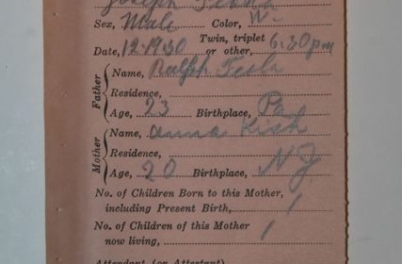 Joseph
Sex, Male Color, W.
Twin, triplet
Date, 12-19-30 or other, 6:30 pm
Father
Name, Ralph
Residence,
Age, 23 Birthplace, Pa
Mother
Name, Anna
Residence,
Age, 20 Birthplace, N J
No. of Children Born to this Mother,
including Present Birth, 1
No. of Children of this Mother
now living, 1
Attendant (or Attestant)